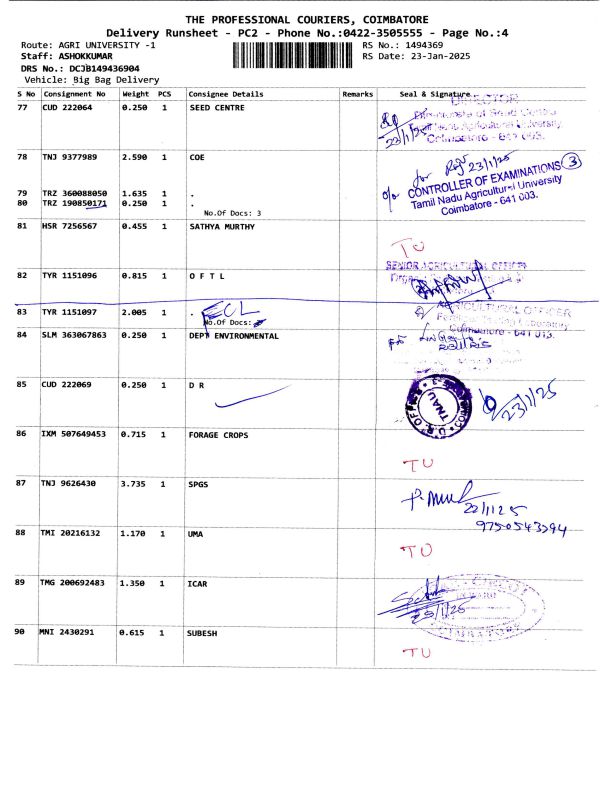 THE PROFESSIONAL COURIERS, COIMBATORE
Delivery Runsheet - PC2 - Phone No.:0422-3505555 - Page No.:4
Route: AGRI UNIVERSITY -1 RS No.: 1494369
Staff: ASHOKKUMAR RS Date: 23-Jan-2025
DRS No.: DCJB149436904
Vehicle: Big Bag Delivery
S No Consignment No Weight PCS Consignee Details Remarks Seal & Signature
77 CUD 222064 0.250 1 SEED CENTRE
DIRECTOR
Directorate of Seed Centre
Agricultural University,
Coimbatore - 641 003.
23/1/25
78 TNJ 9377989 2.590 1 COE
for 23/1/25
CONTROLLER OF EXAMINATIONS 3
Tamil Nadu Agricultural University
Coimbatore - 641 003.
79 TRZ 360088050 1.635 1 .
80 TRZ 190850171 0.250 1 .
No.Of Docs: 3
81 HSR 7256567 0.455 1 SATHYA MURTHY
TU
82 TYR 1151096 0.815 1 O F T L
SENIOR AGRICULTURAL OFFICER
83 TYR 1151097 2.005 1 .
ECL
No.Of Docs:
AGRICULTURAL OFFICER
Laboratory
Coimbatore - 641 013.
84 SLM 363067863 0.250 1 DEPT ENVIRONMENTAL
85 CUD 222069 0.250 1 D R
TNAU
23/1/25
86 IXM 507649453 0.715 1 FORAGE CROPS
TU
87 TNJ 9626430 3.735 1 SPGS
22/1/25
9750543394
88 TMI 20216132 1.170 1 UMA
TU
89 TMG 200692483 1.350 1 ICAR
23/1/25
90 MNI 2430291 0.615 1 SUBESH
TU